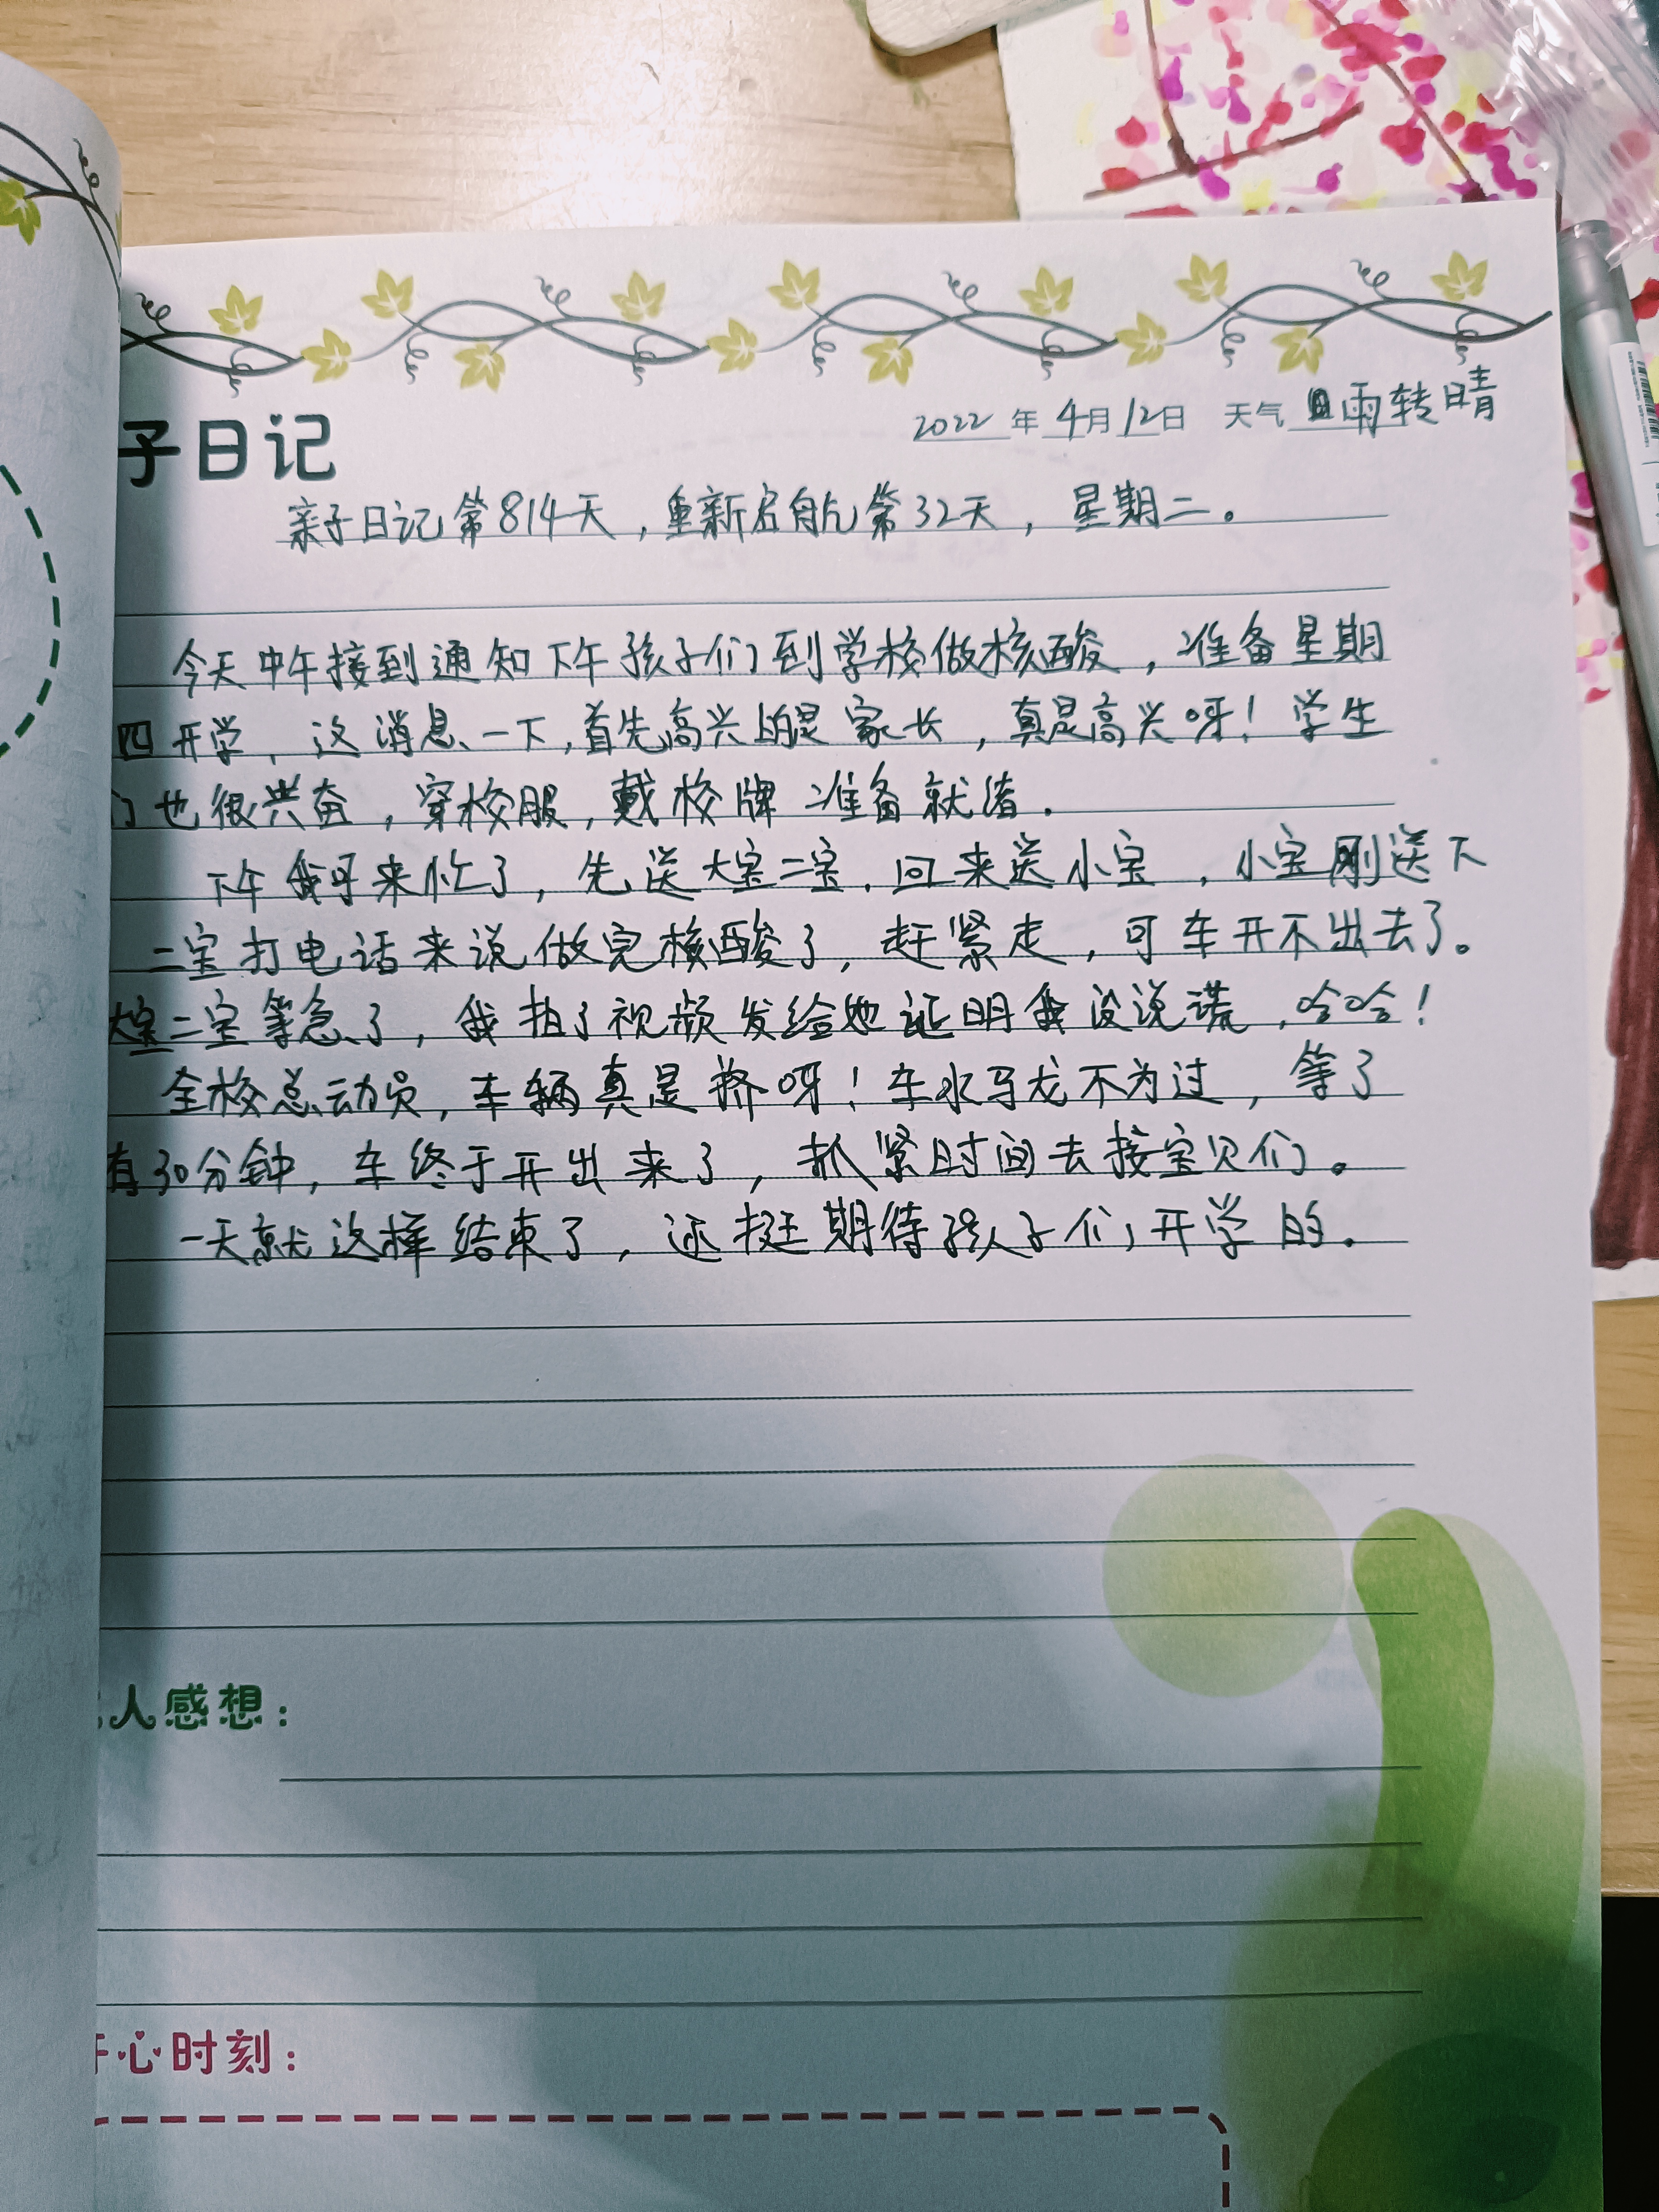 子日记
2022年4月12日 天气 雨转晴
亲子日记第814天，重新启航第32天，星期二。
今天中午接到通知下午孩子们到学校做核酸，准备星期
四开学，这消息一下，首先高兴的是家长，真是高兴呀！学生
们也很兴奋，穿校服，戴校牌 准备就绪.
下午我可来忙了，先送大宝二宝，回来送小宝，小宝刚送下
二宝打电话来说做完核酸了，赶紧走，可车开不出去了。
大宝二宝等急了，我拍了视频发给她证明我没说谎，哈哈！
全校总动员，车辆真是挤呀！车水马龙不为过，等了
有30分钟，车终于开出来了，抓紧时间去接宝贝们。
一天就这样结束了，还挺期待孩子们开学的。
人感想：
开心时刻：